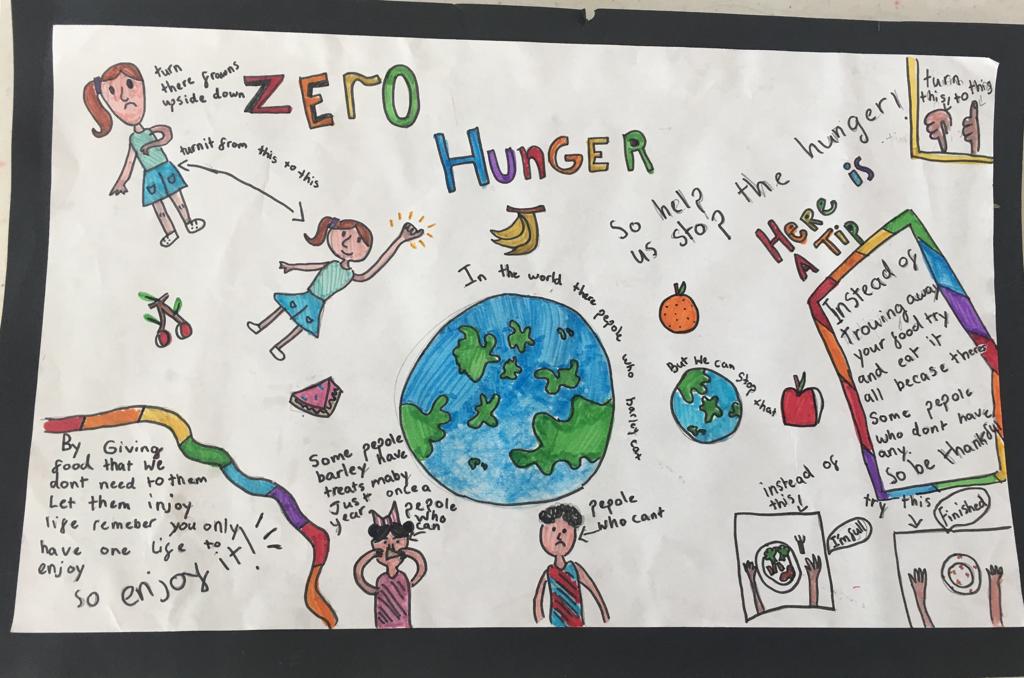 ZEro
HUnGER
turn
there frowns
upside down
turn it from this to this
So help
us stop the hunger!
turn
this to this
HeRe is
A Tip
Instead of
Trowing away
your food try
and eat it
all becase theres
Some pepole
who dont have
any.
So be thankful!
In the world there pepole who barley eat
But we can stop that
By Giving
food that we
dont need to them
Let them injoy
life remeber you only
have one life to
enjoy
so enjoy it!
Some pepole
barley have
treats maby
Just once a
year
pepole
who
can
pepole
who cant
instead of
this
I'm full
try this
Finished